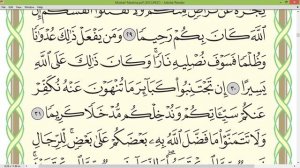 Mushaf Madina.pdf (SECURED) - Adobe Reader
ٱللَّهَ كَانَ بِكُمْ رَحِيمًا ٢٩ وَمَن يَفْعَلْ ذَٰلِكَ عُدْوَٰنًا
وَظُلْمًا فَسَوْفَ نُصْلِيهِ نَارًا ۚ وَكَانَ ذَٰلِكَ عَلَى ٱللَّهِ
يَسِيرًا ٣٠ إِن تَجْتَنِبُوا۟ كَبَآئِرَ مَا تُنْهَوْنَ عَنْهُ نُكَفِّرْ
عَنكُمْ سَيِّـَٔاتِكُمْ وَنُدْخِلْكُم مُّدْخَلًا كَرِيمًا ٣١
وَلَا تَتَمَنَّوْا۟ مَا فَضَّلَ ٱللَّهُ بِهِۦ بَعْضَكُمْ عَلَىٰ بَعْضٍ ۚ لِّلرِّجَالِ